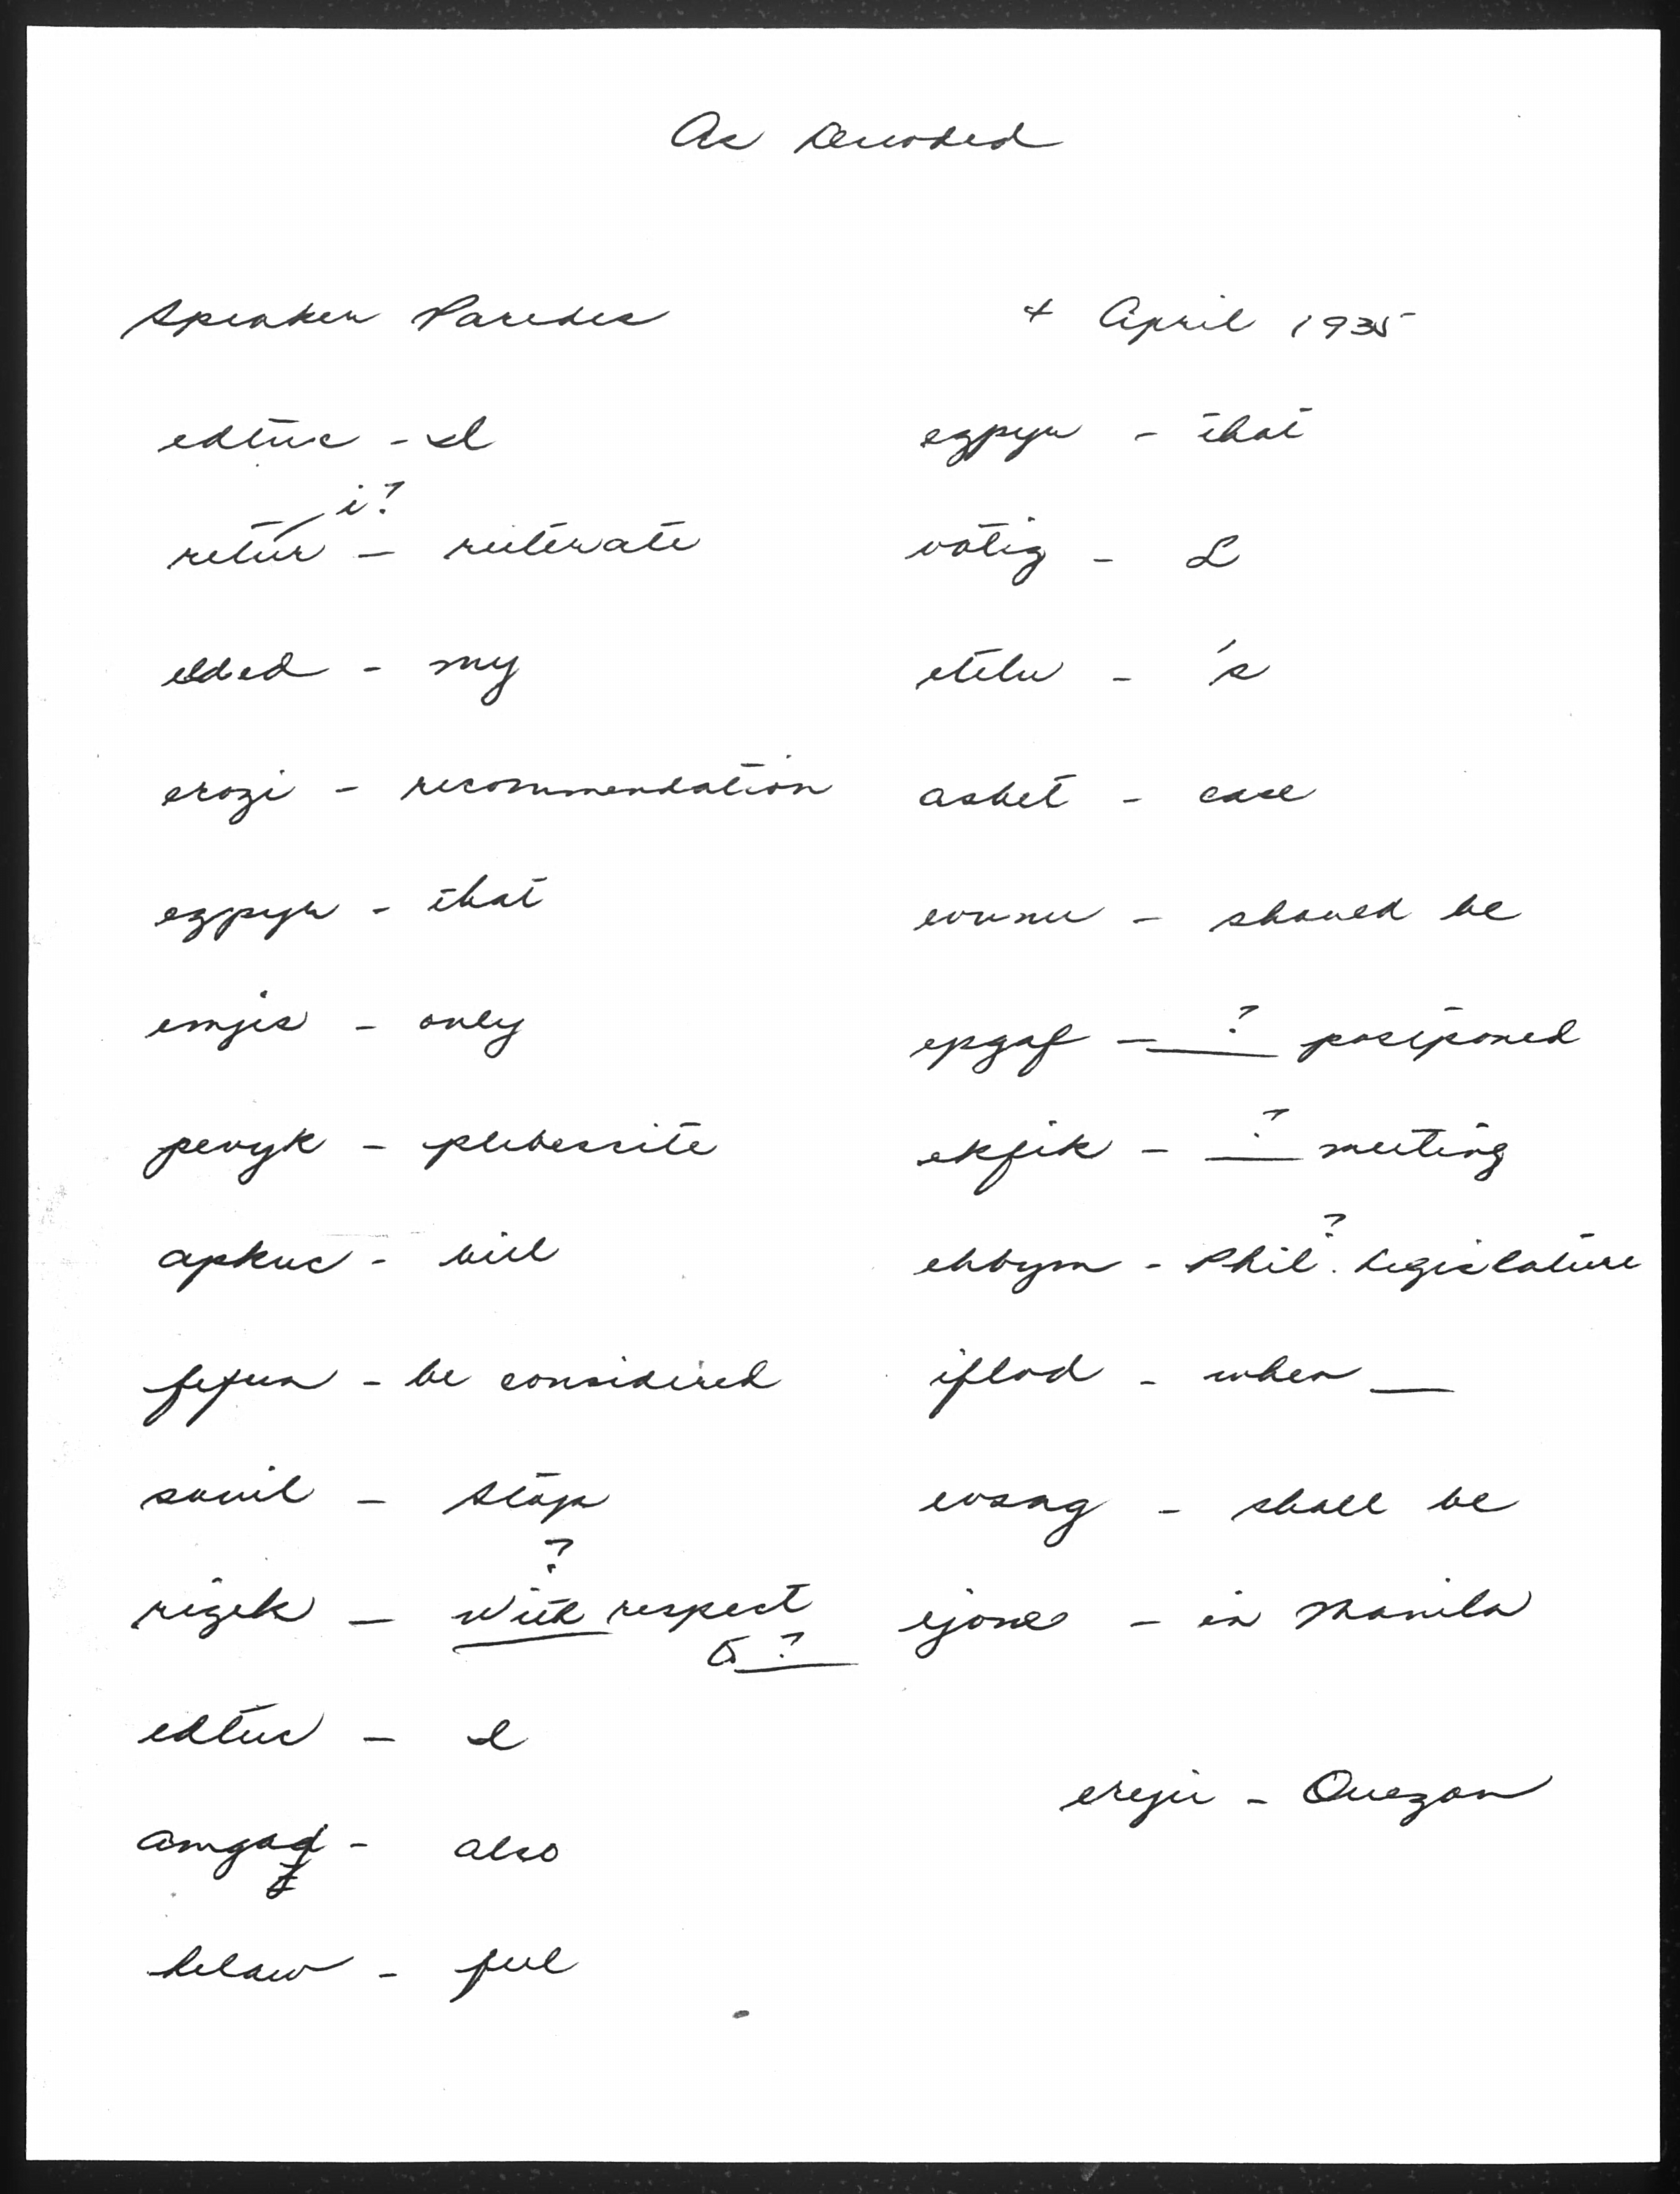 As Decoded
Speaker Paredes
4 April 1935
edtuc - I
i?
retur - reiterate
elded - my
erozi - recommendation
egpyr - that
emjis - only
pevyk - plebescite
apkuc - bill
fejun - be considered
sowil - stop
?
rizek - with respect
to ?
edtuc - I
amgad - also
f
helaw - feel
egpyr - that
votig - L
etelu - 's
asbet - case
evunu - should be
epgaf - ? postponed
ekfik - ? meeting
?
ehbym - Phil. Legislature
iflod - when __
evsag - shall be
ejone - in Manila
ereju - Quezon